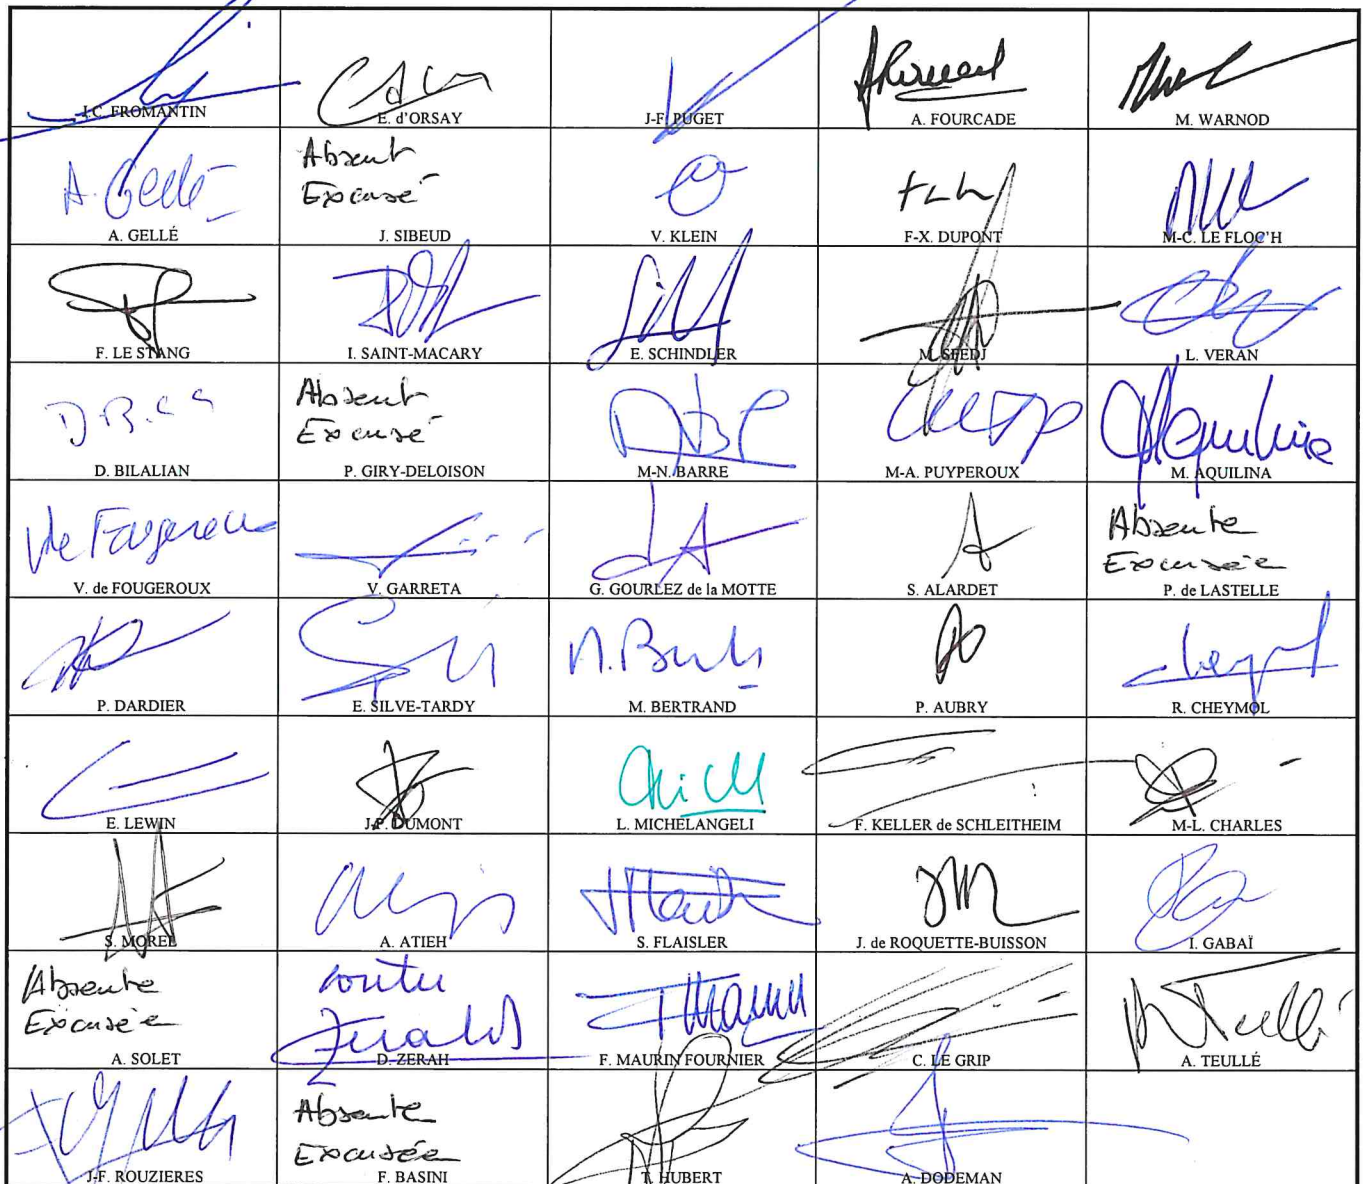 J.C. FROMANTIN
E. d'ORSAY
J-F. PUGET
A. FOURCADE
M. WARNOD
A. Gellé
A. GELLÉ
Absent
Excusé
J. SIBEUD
V. KLEIN
F-X. DUPONT
M-C. LE FLOC'H
F. LE STANG
I. SAINT-MACARY
E. SCHINDLER
M. SFEDJ
L. VERAN
D. BILALIAN
Absent
Excusé
P. GIRY-DELOISON
M-N. BARRE
M-A. PUYPEROUX
Aquilina
M. AQUILINA
V. de FOUGEROUX
V. GARRETA
G. GOURLEZ de la MOTTE
S. ALARDET
Absente
Excusée
P. de LASTELLE
P. DARDIER
E. SILVE-TARDY
M. BERTRAND
P. AUBRY
R. CHEYMOL
E. LEWIN
J.P. DUMONT
L. MICHELANGELI
F. KELLER de SCHLEITHEIM
M-L. CHARLES
S. MOREL
A. ATIEH
S. FLAISLER
J. de ROQUETTE-BUISSON
I. GABAÏ
Absente
Excusée
A. SOLET
contre
D. ZERAH
F. MAURIN FOURNIER
C. LE GRIP
A Teullé
A. TEULLÉ
J-F. ROUZIERES
Absente
Excusée
F. BASINI
T. HUBERT
A. DODEMAN